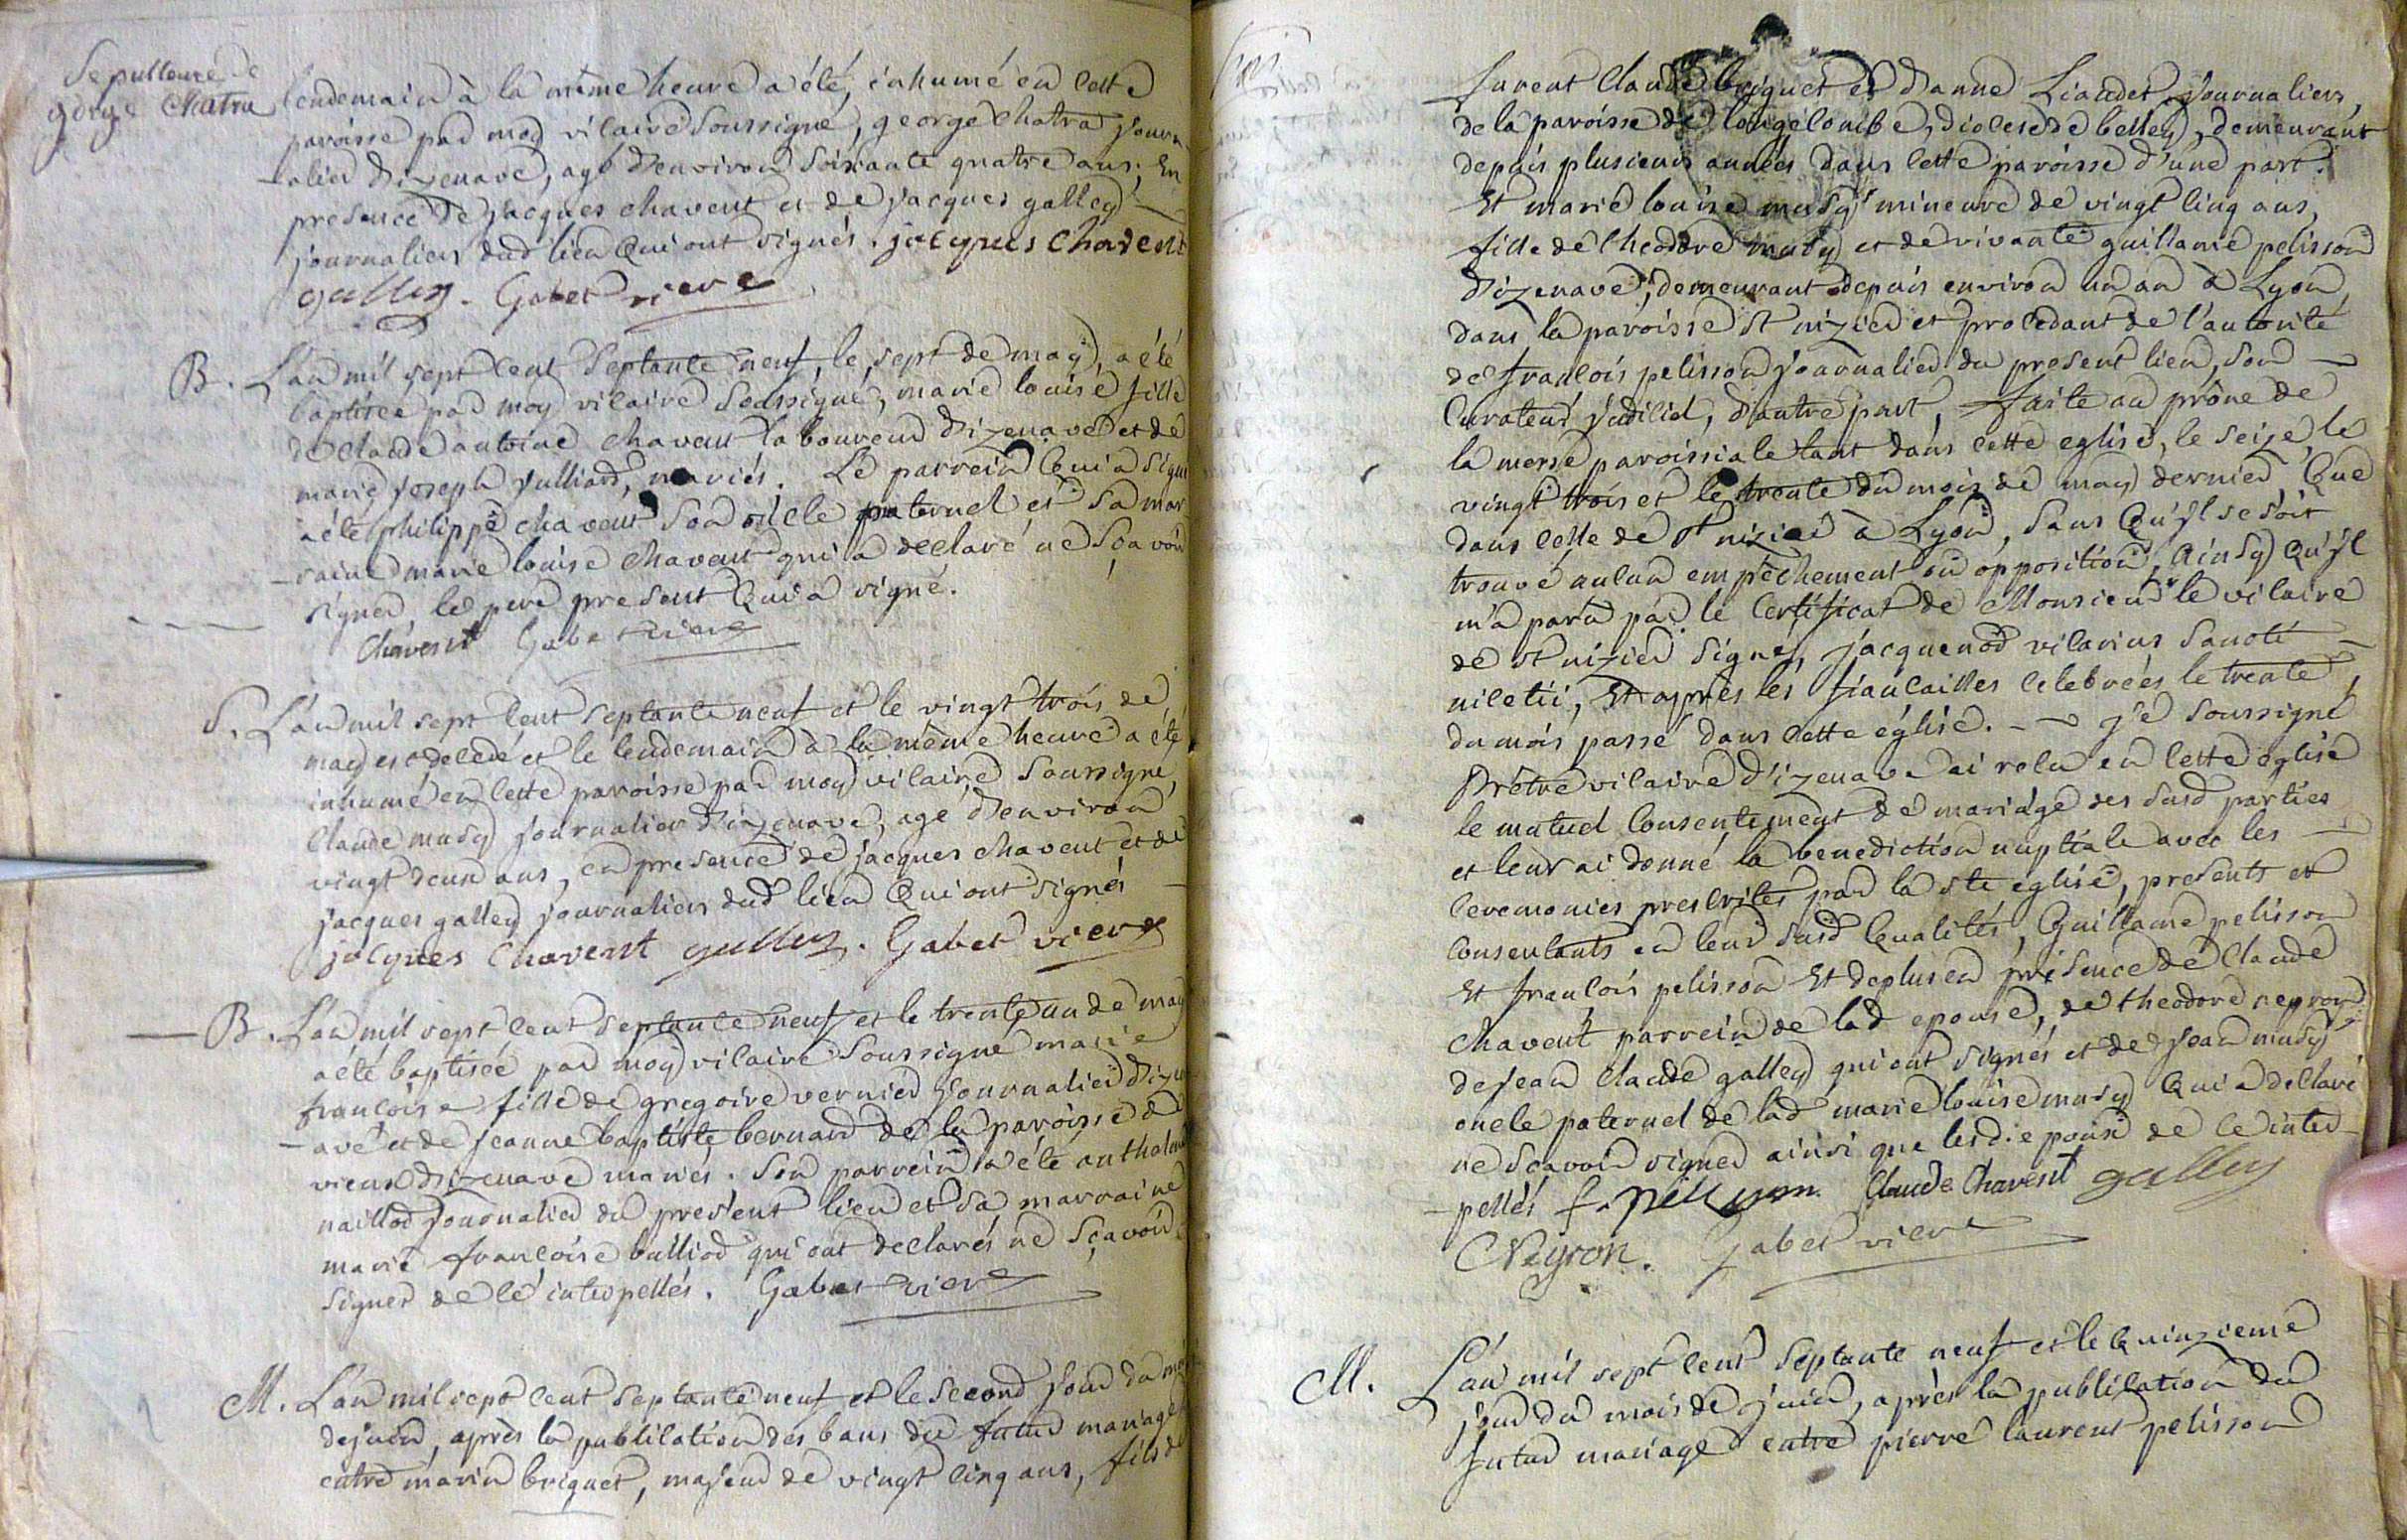 Sepulture de
george Chatra
lendemain à la même heure a été, inhumé en cette
paroisse par moy vicaire soussigné, george chatra journ
-alier d'izenave, agé d'environ soixante quatre ans; En
presence de jacques chavent et de jacques galley
journaliers dud lieu qui ont signés. jacques Chavent
galley. Gabet vicre
B. L'an mil sept cent septante neuf, le sept de may, a été
baptisée par moy vicaire soussigné, marie louise fille
de claude antoine chavent laboureur d'izenave et de
marie joseph julliard, mariés. Le parrein qui a signé
a été philippe chavent son oncle paternel et sa mar
-raine marie louise chavent qui a declaré ne sçavoir
signer, le pere present qui a signé.
Chavent Gabet vicre
S. L'an mil sept cent septante neuf et le vingt trois de
may est decedé et le lendemain à la même heure a été
inhumé en cette paroisse par moy vicaire soussigné,
Claude musy journalier d'izenave, agé d'environ
vingt deux ans, en presence de jacques chavent et de
jacques galley journaliers dud lieu qui ont signés
jacques Chavent galley. Gabet vicre
B. L'an mil sept cent septante neuf et le trente un de may
a été baptisée par moy vicaire soussigné marie
françoise fille de gregoire vernier journalier d'izen
-ave et de jeanne baptiste bernard de la paroisse de
vieux d'izenave mariés. Son parrein a été anthelme
naillod journalier du present lieu et sa marraine
marie françoise bulliod qui ont declarés ne sçavoir
signer de ce interpellés. Gabet vicre
M. L'an mil sept cent septante neuf et le second jour du mois
de juin, après la publication des bans du futur mariage
entre marin briguet, majeur de vingt cinq ans, fils de
furent Claude briguet et d'anne Liaudet, journaliers,
de la paroisse de longecombe, diocese de belley, demeurant
depuis plusieurs années dans cette paroisse d'une part.
Et marie louise musy mineure de vingt cinq ans,
fille de theodore musy et de vivante guillame pelisson
d'izenave, demeurant depuis environ un an à Lyon,
dans la paroisse St nizier et procedant de l'autorité
de françois pelisson journalier du present lieu, son
Curateur judiciel, d'autre part, faite au prône de
la messe paroissiale tant dans cette eglise, le seize, le
vingt trois et le trente du mois de may dernier que
dans celle de St nizier à Lyon, sans qu'il se soit
trouvé aucun empêchement ou opposition, ainsy qu'il
m'a paru par le certificat de Monsieur le vicaire
de St nizier signé, jacquenod vicarius sancti
nicetii, Et après les fiançailles celebrées le trente
du mois passé dans cette église. - je soussigné
Prêtre vicaire d'izenave ai reçu en cette église
le mutuel consentement de mariage des susd parties
et leur ai donné la benediction nuptiale avec les
ceremonies prescrites par la ste eglise, presents et
consentants en leur susd qualités, Guillame pelisson
Et françois pelisson Et de plus en présence de Claude
chavent parrein de lad epouse, de theodore neyron
de jean claude galley qui ont signés et de jean musy
oncle paternel de lad marie louise musy qui a declaré
ne sçavoir signer ainsi que lesd epoux de ce inter-
-pellés f. pelisson Claude Chavent galley
Neyron. Gabet vicre
M. L'an mil sept cent septante neuf et le quinzieme
jour du mois de juin, après la publication du
futur mariage entre pierre laurent pelisson